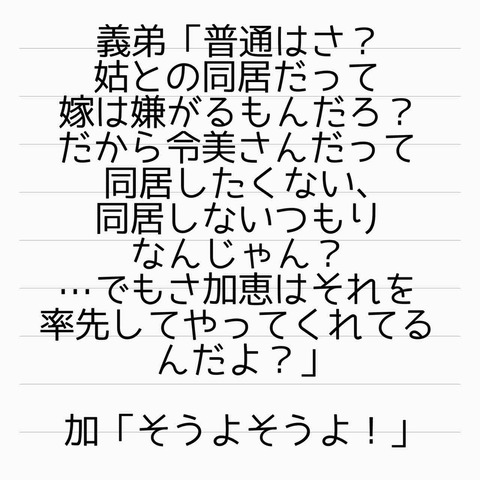 義弟「普通はさ？
姑との同居だって
嫁は嫌がるもんだろ？
だから令美さんだって
同居したくない、
同居しないつもり
なんじゃん？
…でもさ加恵はそれを
率先してやってくれてる
んだよ？」
加「そうよそうよ！」